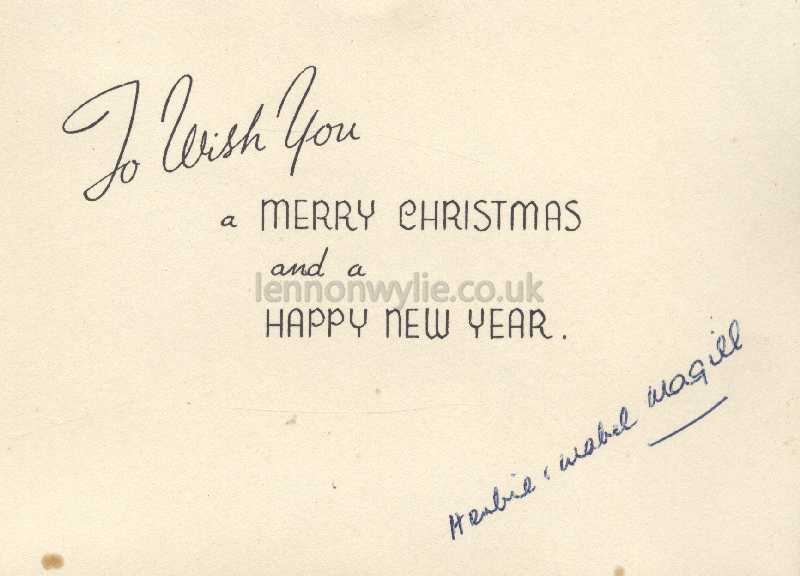 To Wish You
a MERRY CHRISTMAS
and a
lennonwylie.co.uk
HAPPY NEW YEAR.
Herbie & Mabel Magill